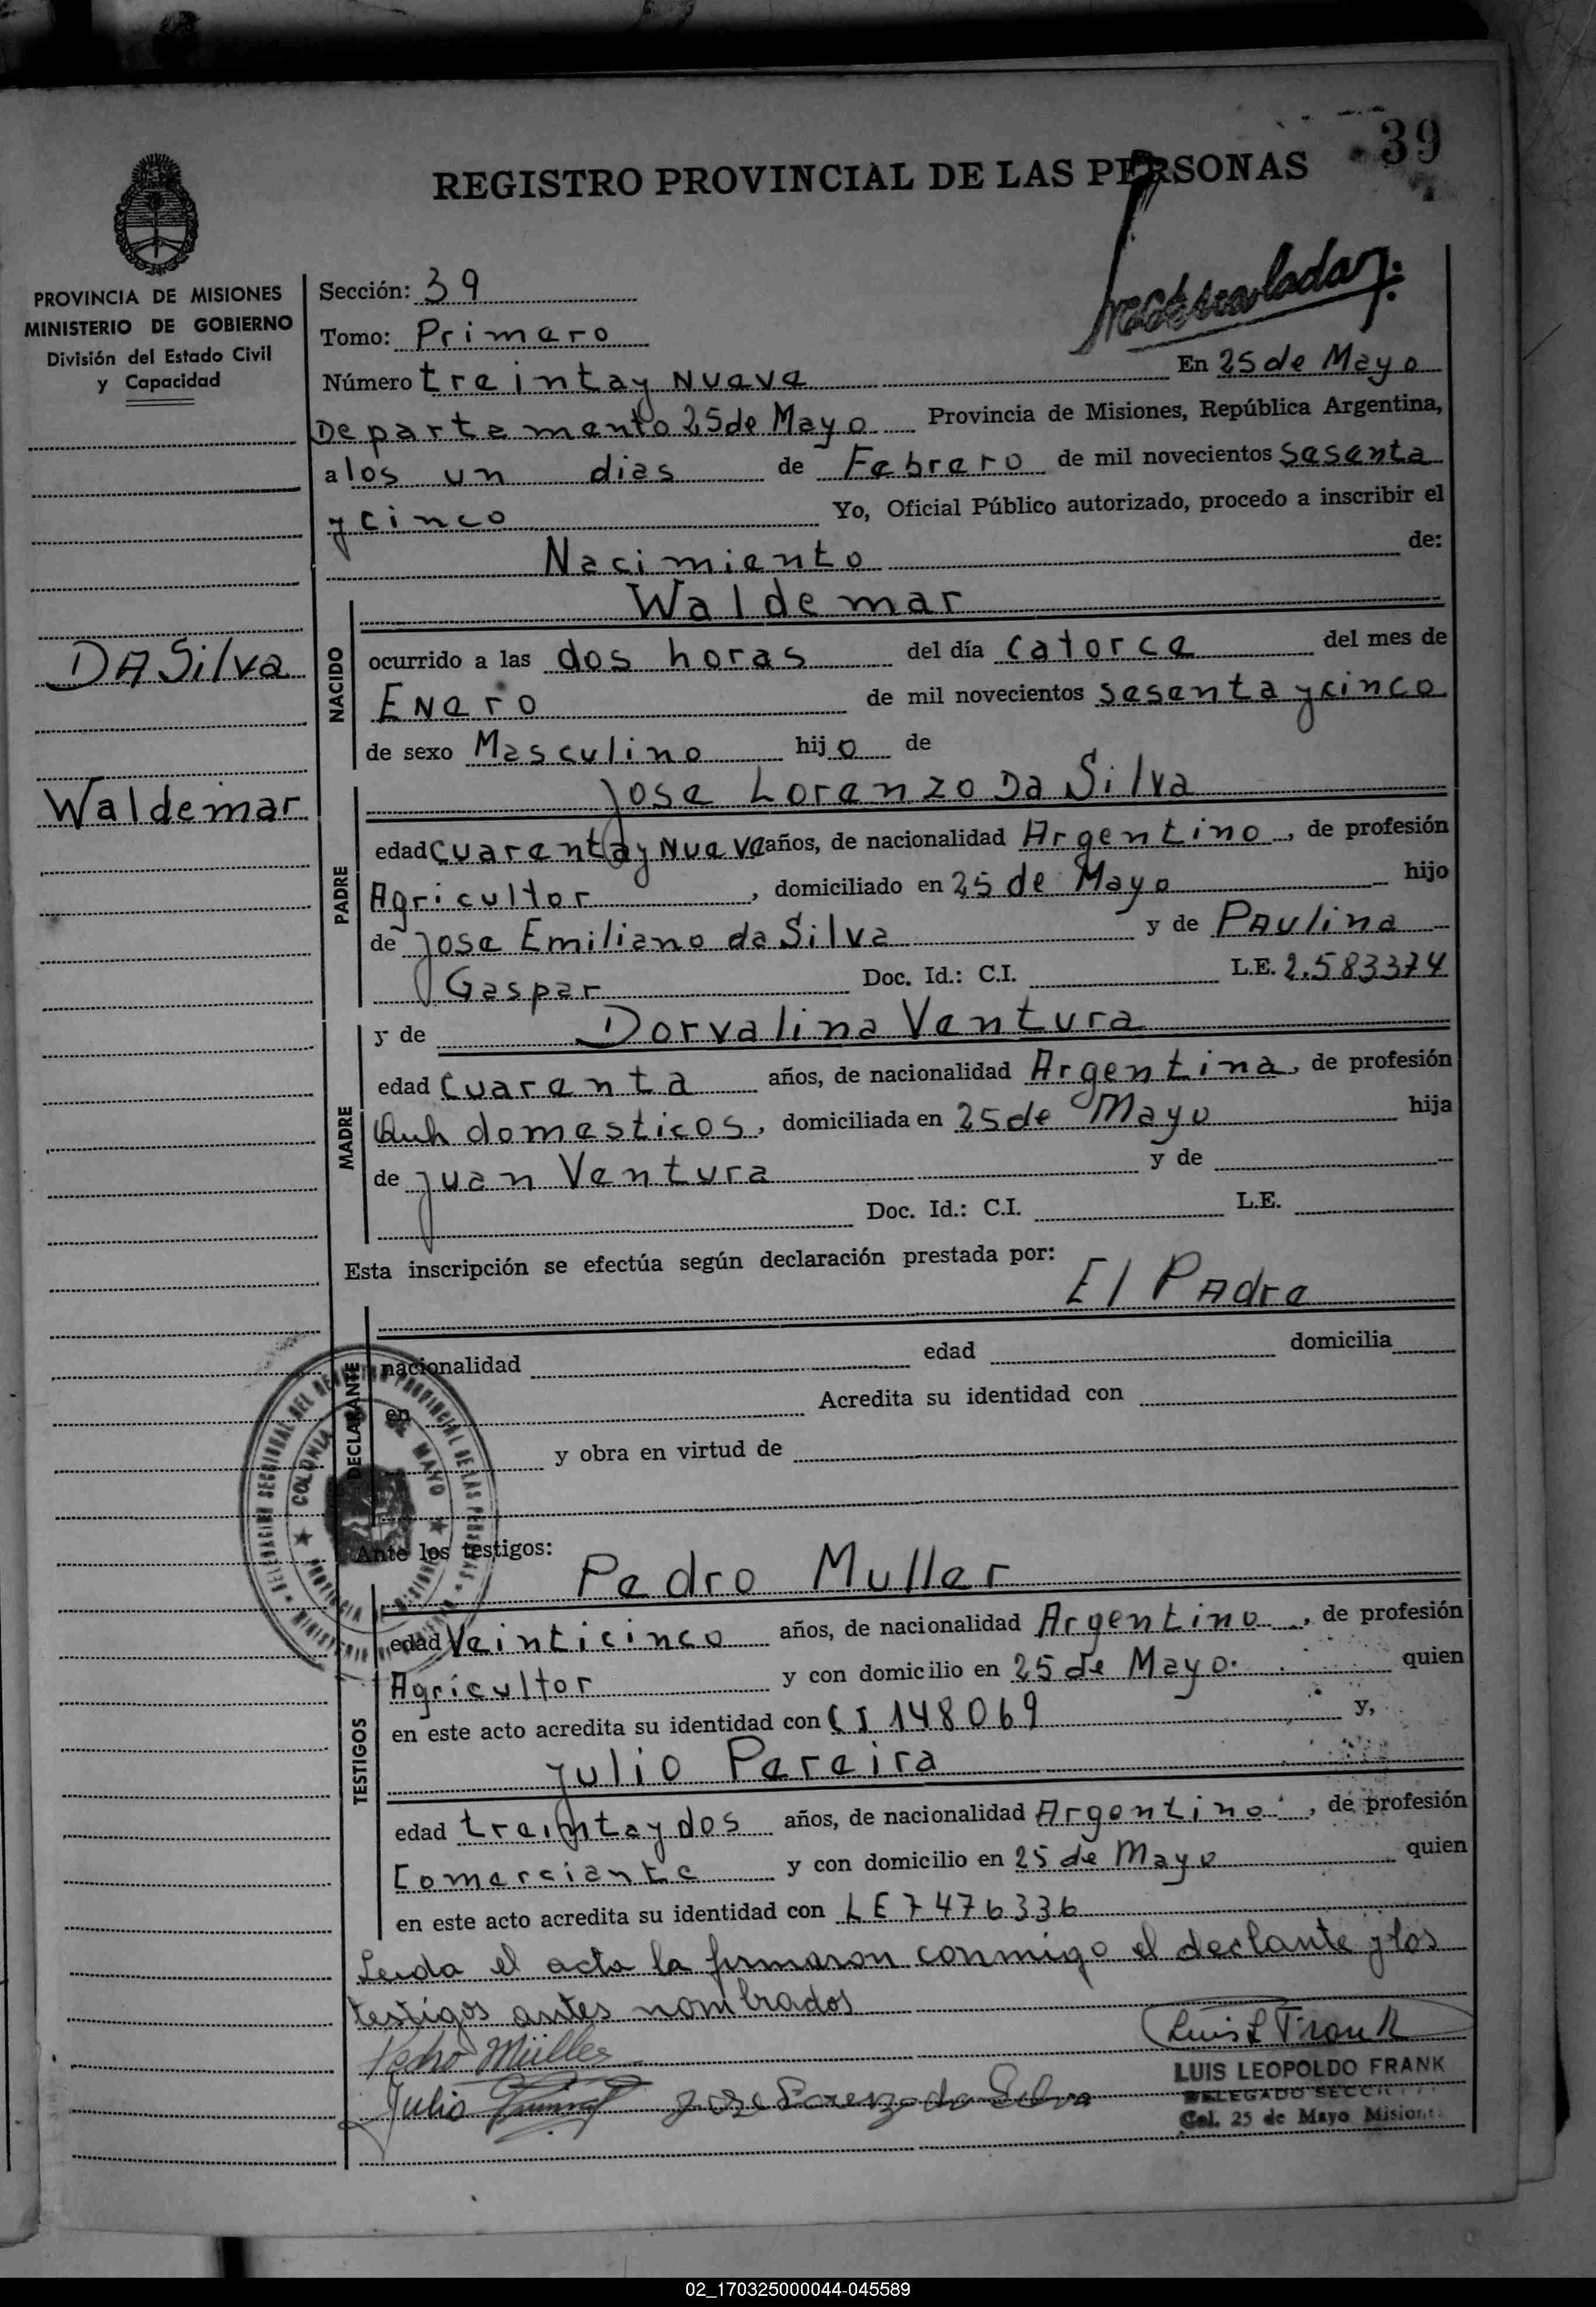 39
REGISTRO PROVINCIAL DE LAS PERSONAS
PROVINCIA DE MISIONES
MINISTERIO DE GOBIERNO
División del Estado Civil
y Capacidad
DA Silva
Waldemar
Sección: 39
Tomo: Primero
Número treinta y Nueve En 25 de Mayo
Departamento 25 de Mayo Provincia de Misiones, República Argentina,
a los un dias de Febrero de mil novecientos sesenta
y cinco Yo, Oficial Público autorizado, procedo a inscribir el
Nacimiento de:
NACIDO
Waldemar
ocurrido a las dos horas del día catorce del mes de
Enero de mil novecientos sesenta y cinco
de sexo Masculino hijo de
PADRE
Jose Lorenzo Da Silva
edad cuarenta y Nueve años, de nacionalidad Argentino, de profesión
Agricultor, domiciliado en 25 de Mayo hijo
de Jose Emiliano da Silva y de PAulina
Gaspar Doc. Id.: C.I. L.E. 2.583374
MADRE
y de Dorvalina Ventura
edad cuarenta años, de nacionalidad Argentina, de profesión
Queh domesticos, domiciliada en 25 de Mayo hija
de Juan Ventura y de
Doc. Id.: C.I. L.E.
Esta inscripción se efectúa según declaración prestada por:
El PAdre
DECLARANTE
nacionalidad edad domicilia
en Acredita su identidad con
y obra en virtud de
DELEGACION SECCIONAL DEL REGISTRO PROVINCIAL DE LAS PERSONAS
COLONIA 25 DE MAYO
PROVINCIA DE MISIONES
Ante los testigos:
TESTIGOS
Pedro Muller
edad Veinticinco años, de nacionalidad Argentino, de profesión
Agricultor y con domicilio en 25 de Mayo. quien
en este acto acredita su identidad con CI 148069 y,
Julio Pereira
edad treinta y dos años, de nacionalidad Argentino, de profesión
Comerciante y con domicilio en 25 de Mayo quien
en este acto acredita su identidad con LE 7476336
Leida el acta la firmaron conmigo el declante y los
testigos antes nombrados
Pedro Müller
Luis L Frank
Julio
Jose Lorenzo da Silva
LUIS LEOPOLDO FRANK
DELEGADO SECC
Col. 25 de Mayo Misiones
02_170325000044-045589